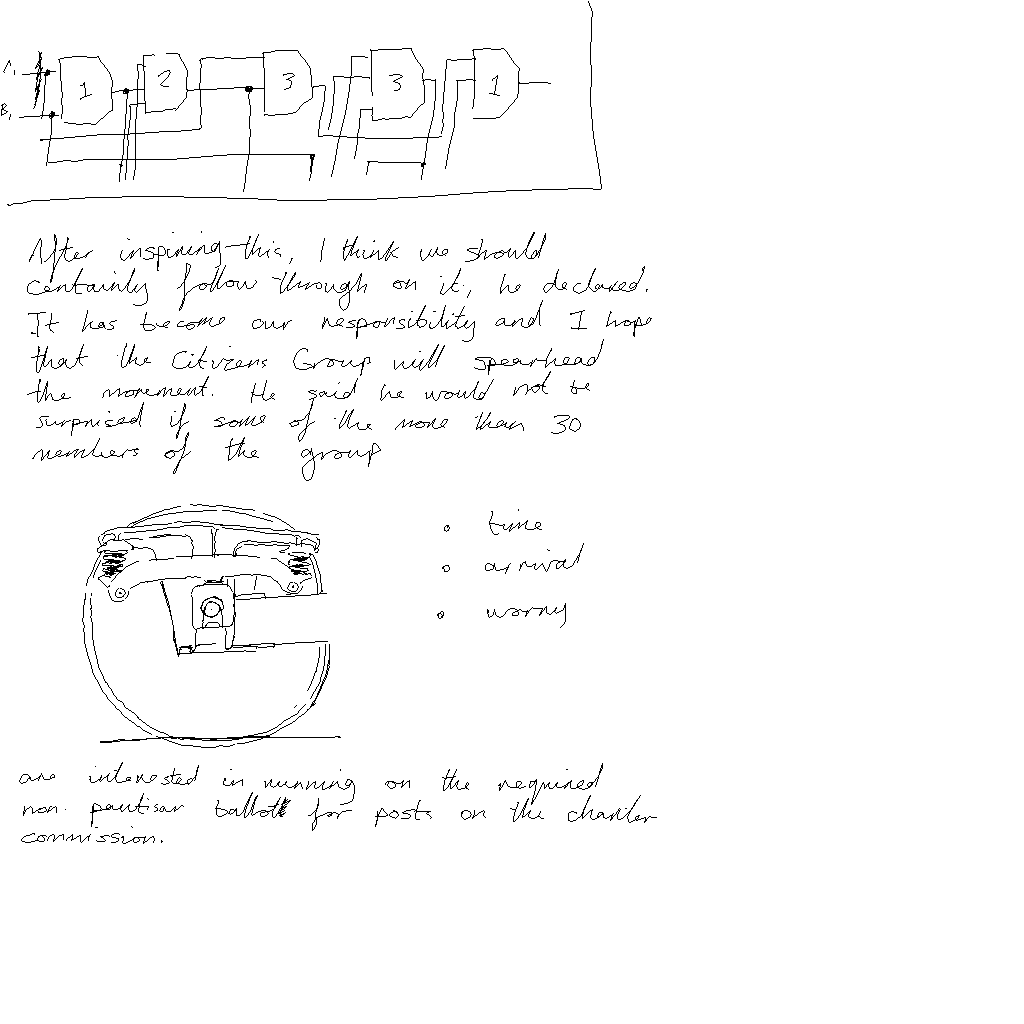 A,
B,
1 2 3 3 1
After inspiring this, I think we should
certainly follow through on it, he declared.
It has become our responsibility and I hope
that the Citizens Group will spearhead
the movement. He said he would not be
surprised if some of the more than 30
members of the group
• time
• arrival
• worry
are interested in running on the required
non. partisan ballot for posts on the charter
commission.